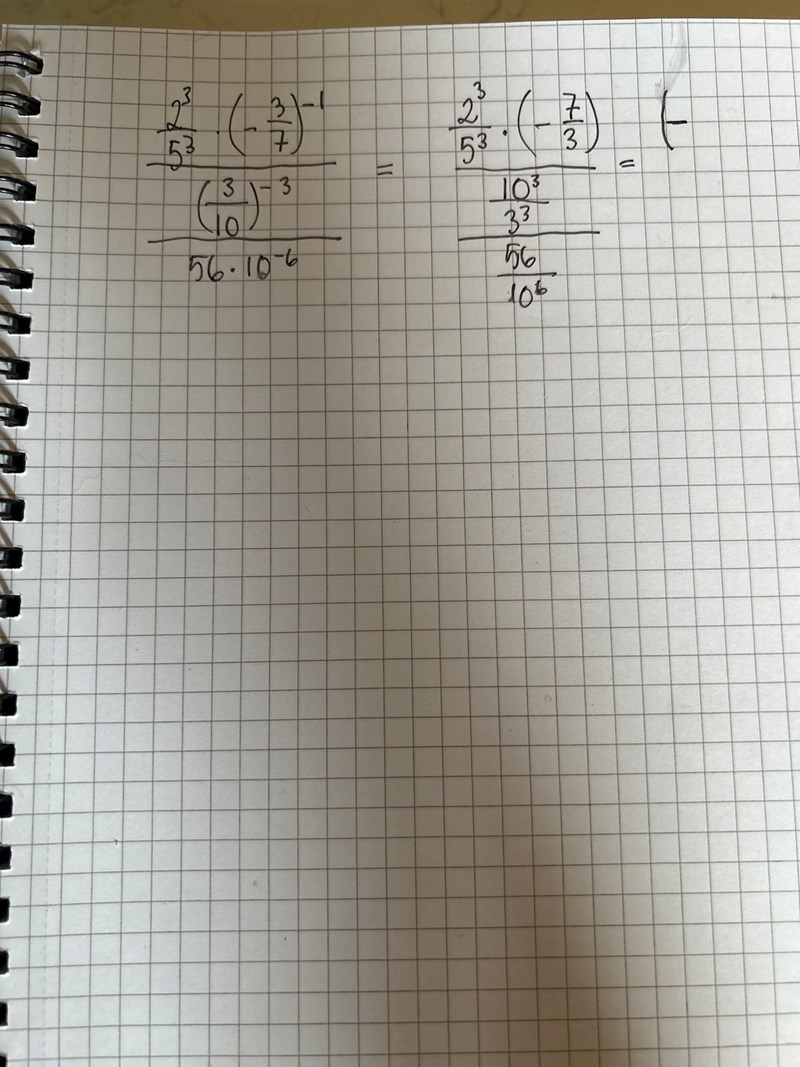 2³/5³ · (-3/7)⁻¹ / (3/10)⁻³ / 56·10⁻⁶ = 2³/5³ · (-7/3) / 10³/3³ / 56/10⁶ = (-